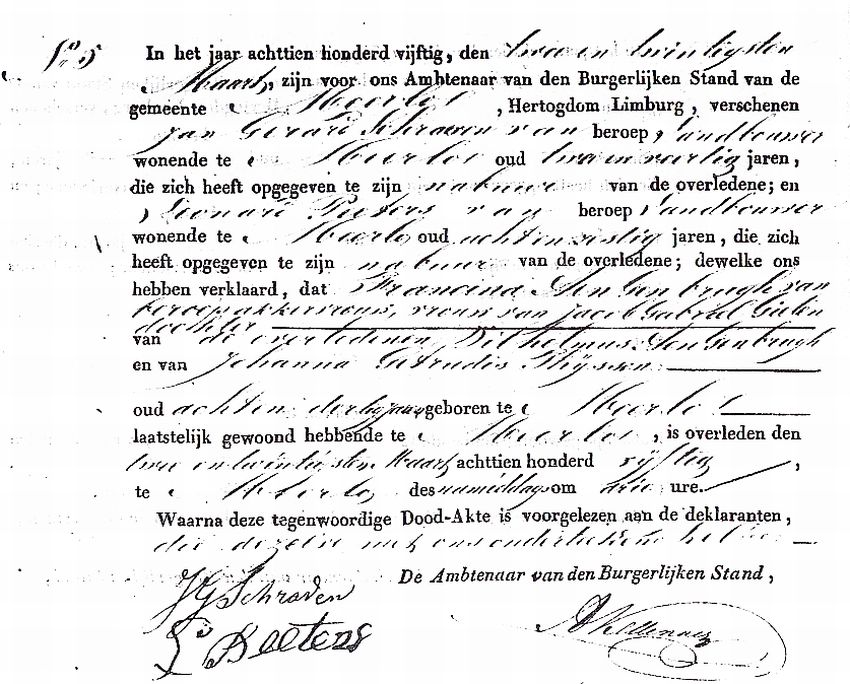 No 5
In het jaar achttien honderd vijftig, den twee en twintigsten
Maart, zijn voor ons Ambtenaar van den Burgerlijken Stand van de
gemeente Meerlo, Hertogdom Limburg, verschenen
Jan Gerard Schraven van beroep Landbouwer
wonende te Meerlo oud twee en veertig jaren,
die zich heeft opgegeven te zijn nabuur van de overledene; en
Leonard Peeters van beroep Landbouwer
wonende te Meerlo oud acht en jaren, die zich
heeft opgegeven te zijn nabuur van de overledene; dewelke ons
hebben verklaard, dat Francina van
beroep akkervrouw, vrouw van Jacob Gabriel Gielen
dochter
van de overledenen Wilhelmus
en van Johanna Gertrudis Thijssen
oud acht en dertig jaren geboren te Meerlo
laatstelijk gewoond hebbende te Meerlo, is overleden den
twee en twintigsten Maart achttien honderd vijftig,
te Meerlo des namiddags om drie ure.
Waarna deze tegenwoordige Dood-Akte is voorgelezen aan de deklaranten,
die dezelve met ons onderteekend hebben
De Ambtenaar van den Burgerlijken Stand,
JG Schraven
L Peeters